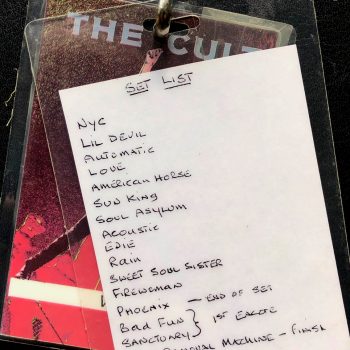 THE CULT
SET LIST
NYC
LIL DEVIL
AUTOMATIC
LOVE
AMERICAN HORSE
SUN KING
SOUL ASYLUM
ACOUSTIC
EDIE
RAIN
SWEET SOUL SISTER
FIREWOMAN
PHOENIX — END OF SET
BAD FUN } 1ST ENCORE
SANCTUARY
MACHINE — FINISH